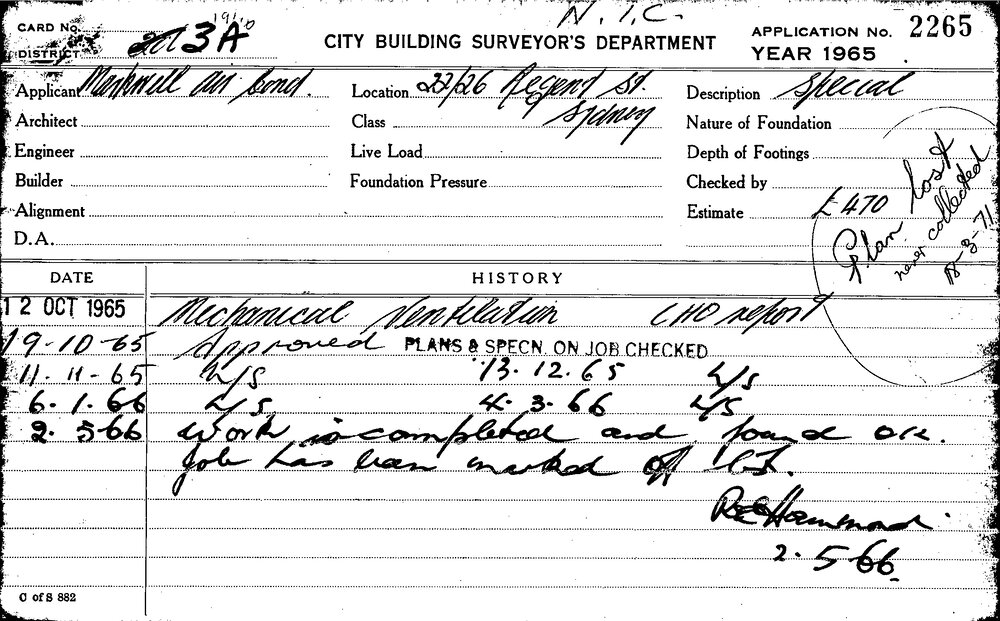 N.I.C.
CARD No.
DISTRICT 3A
CITY BUILDING SURVEYOR'S DEPARTMENT
APPLICATION No. 2265
YEAR 1965
Applicant air cond. Location 22/26 Regent St. Description Special
Architect Class Sydney Nature of Foundation
Engineer Live Load Depth of Footings
Builder Foundation Pressure Checked by
Alignment Estimate £470
D.A.
Plan lost
never collected
18-3-71
DATE HISTORY
12 OCT 1965 Mechanical Ventilation CHO report
19-10-65 Approved PLANS & SPECN. ON JOB CHECKED
11.11-65 W/S 13.12.65 W/S
6.1.66 W/S 4.3.66 W/S
2.5-66 Work is completed and found O.K.
Job has been marked off
R Hammond.
2.5-66.
C of S 882